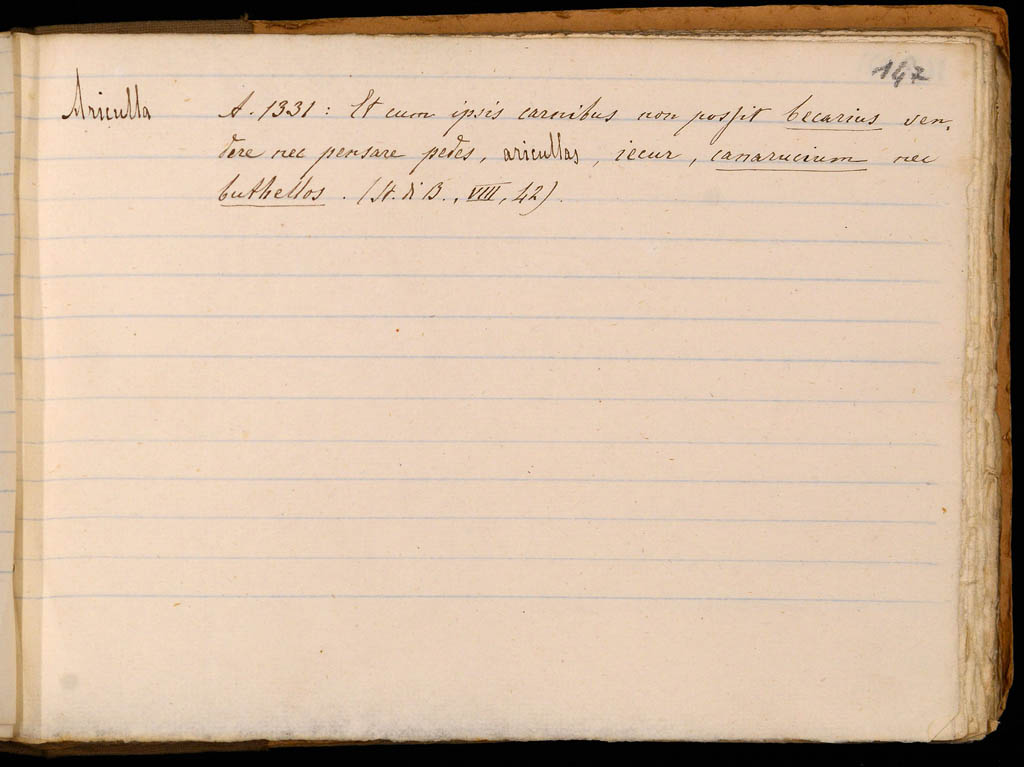 147
Aricula A. 1331: Et cum ipsis carnibus non possit becarius ven-
dere nec pensare pedes, ariculas, iecur, canarucium nec
buthellos. (St. di B., VIII, 42).